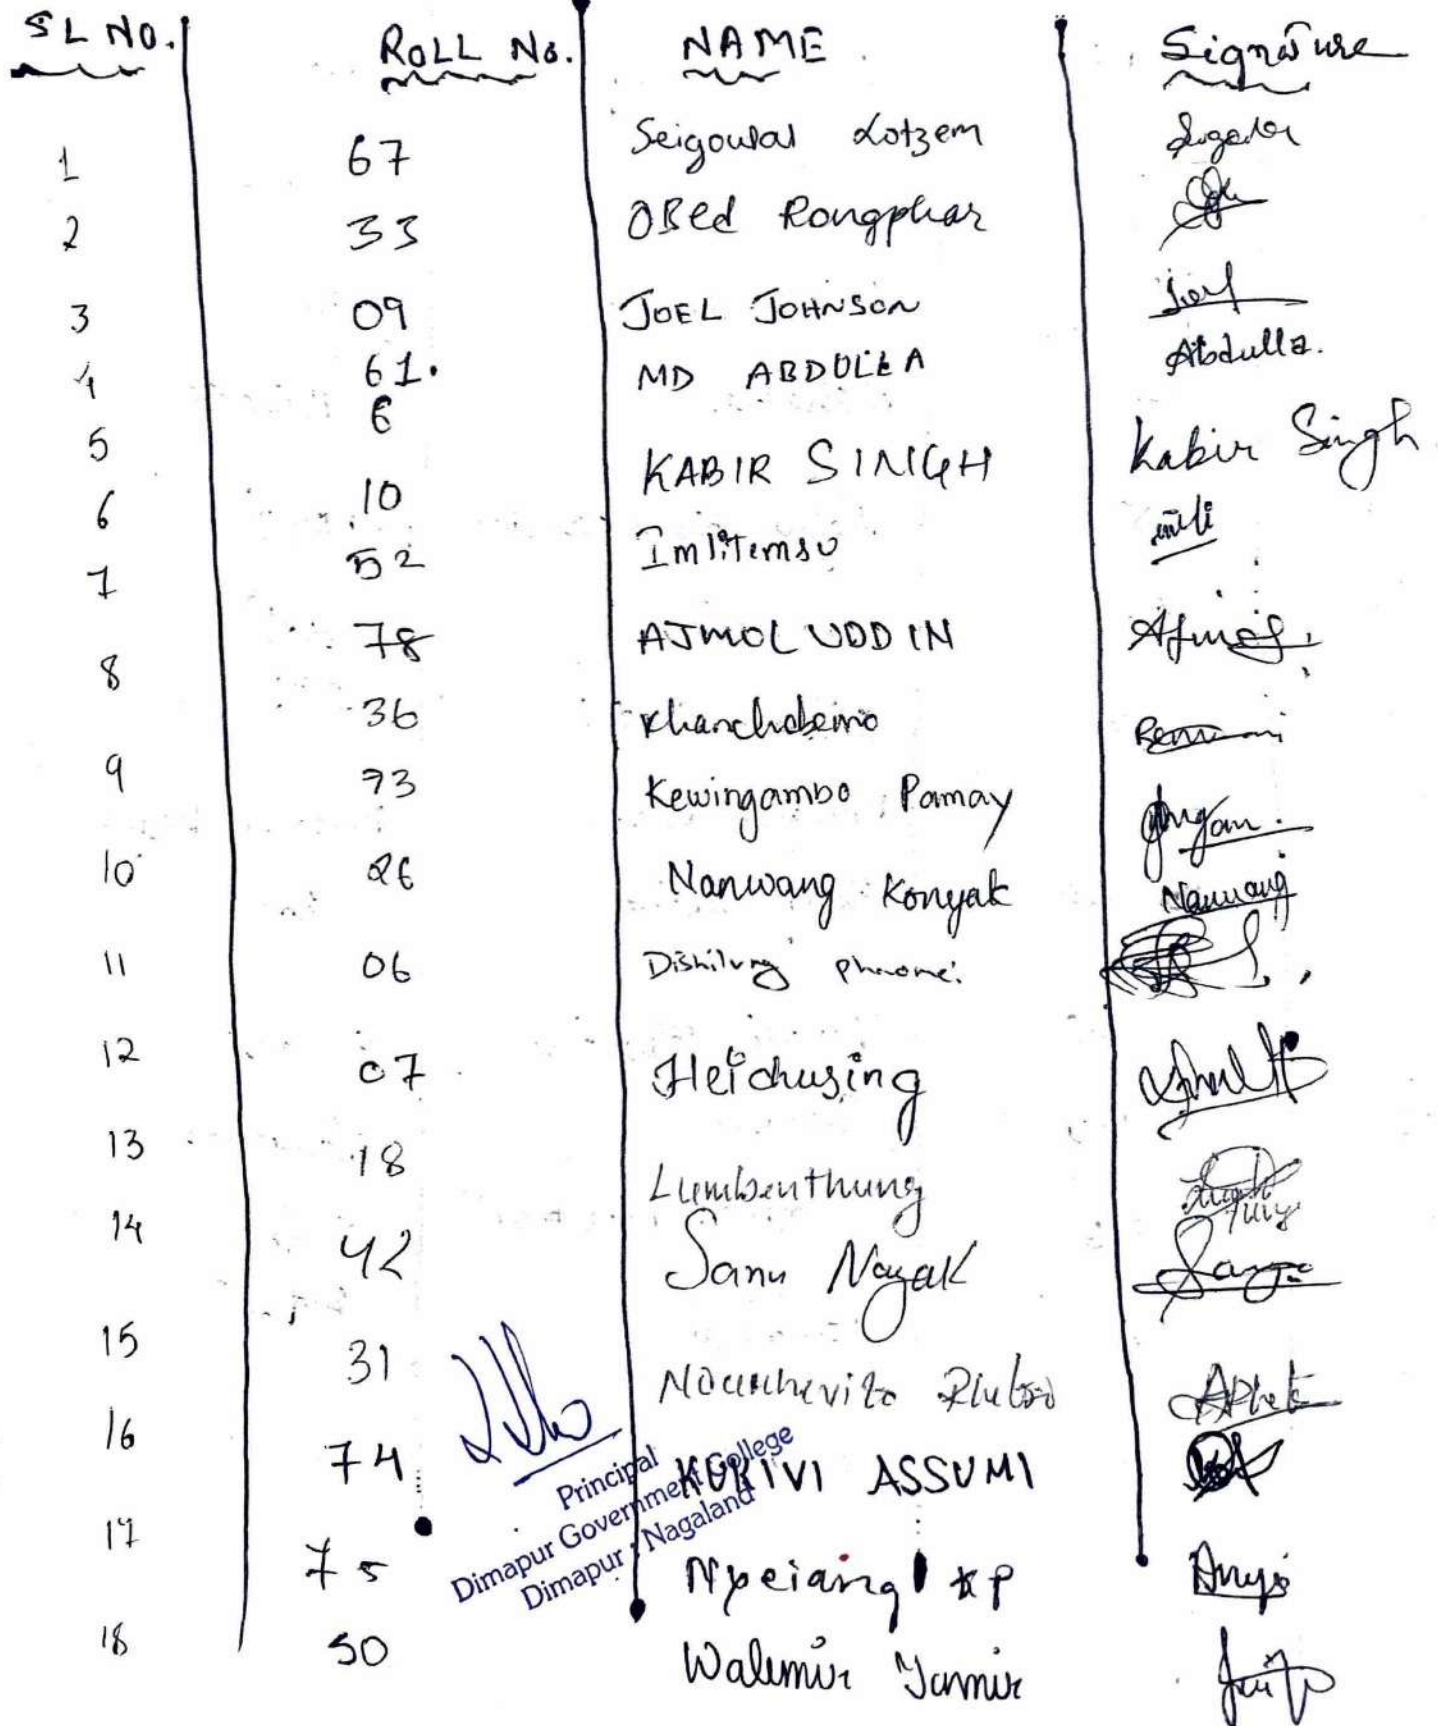 SL NO. ROLL No. NAME Signature
1 67 Seigoulal Lotzem
2 33 OBed Rongphar
3 09 JOEL JOHNSON Joel
4 61. MD ABDULLA Abdulla.
5 6 KABIR SINGH Kabir Singh
6 10 Imlitemsu imli
7 52 AJMOL UDDIN Ajmol
8 78 Khanchobemo
9 36 Kewingambo Pamay
10 93 Nanwang Konyak Nanwang
11 26 Dishilung
12 06 Heichusing
13 07 Lumbenthung
14 18 Sanu Nayak
15 42
16 31 KUKIVI ASSUMI
17 74 KP
18 75 Walemir Jamir
50
Principal
Dimapur Government College
Dimapur : Nagaland